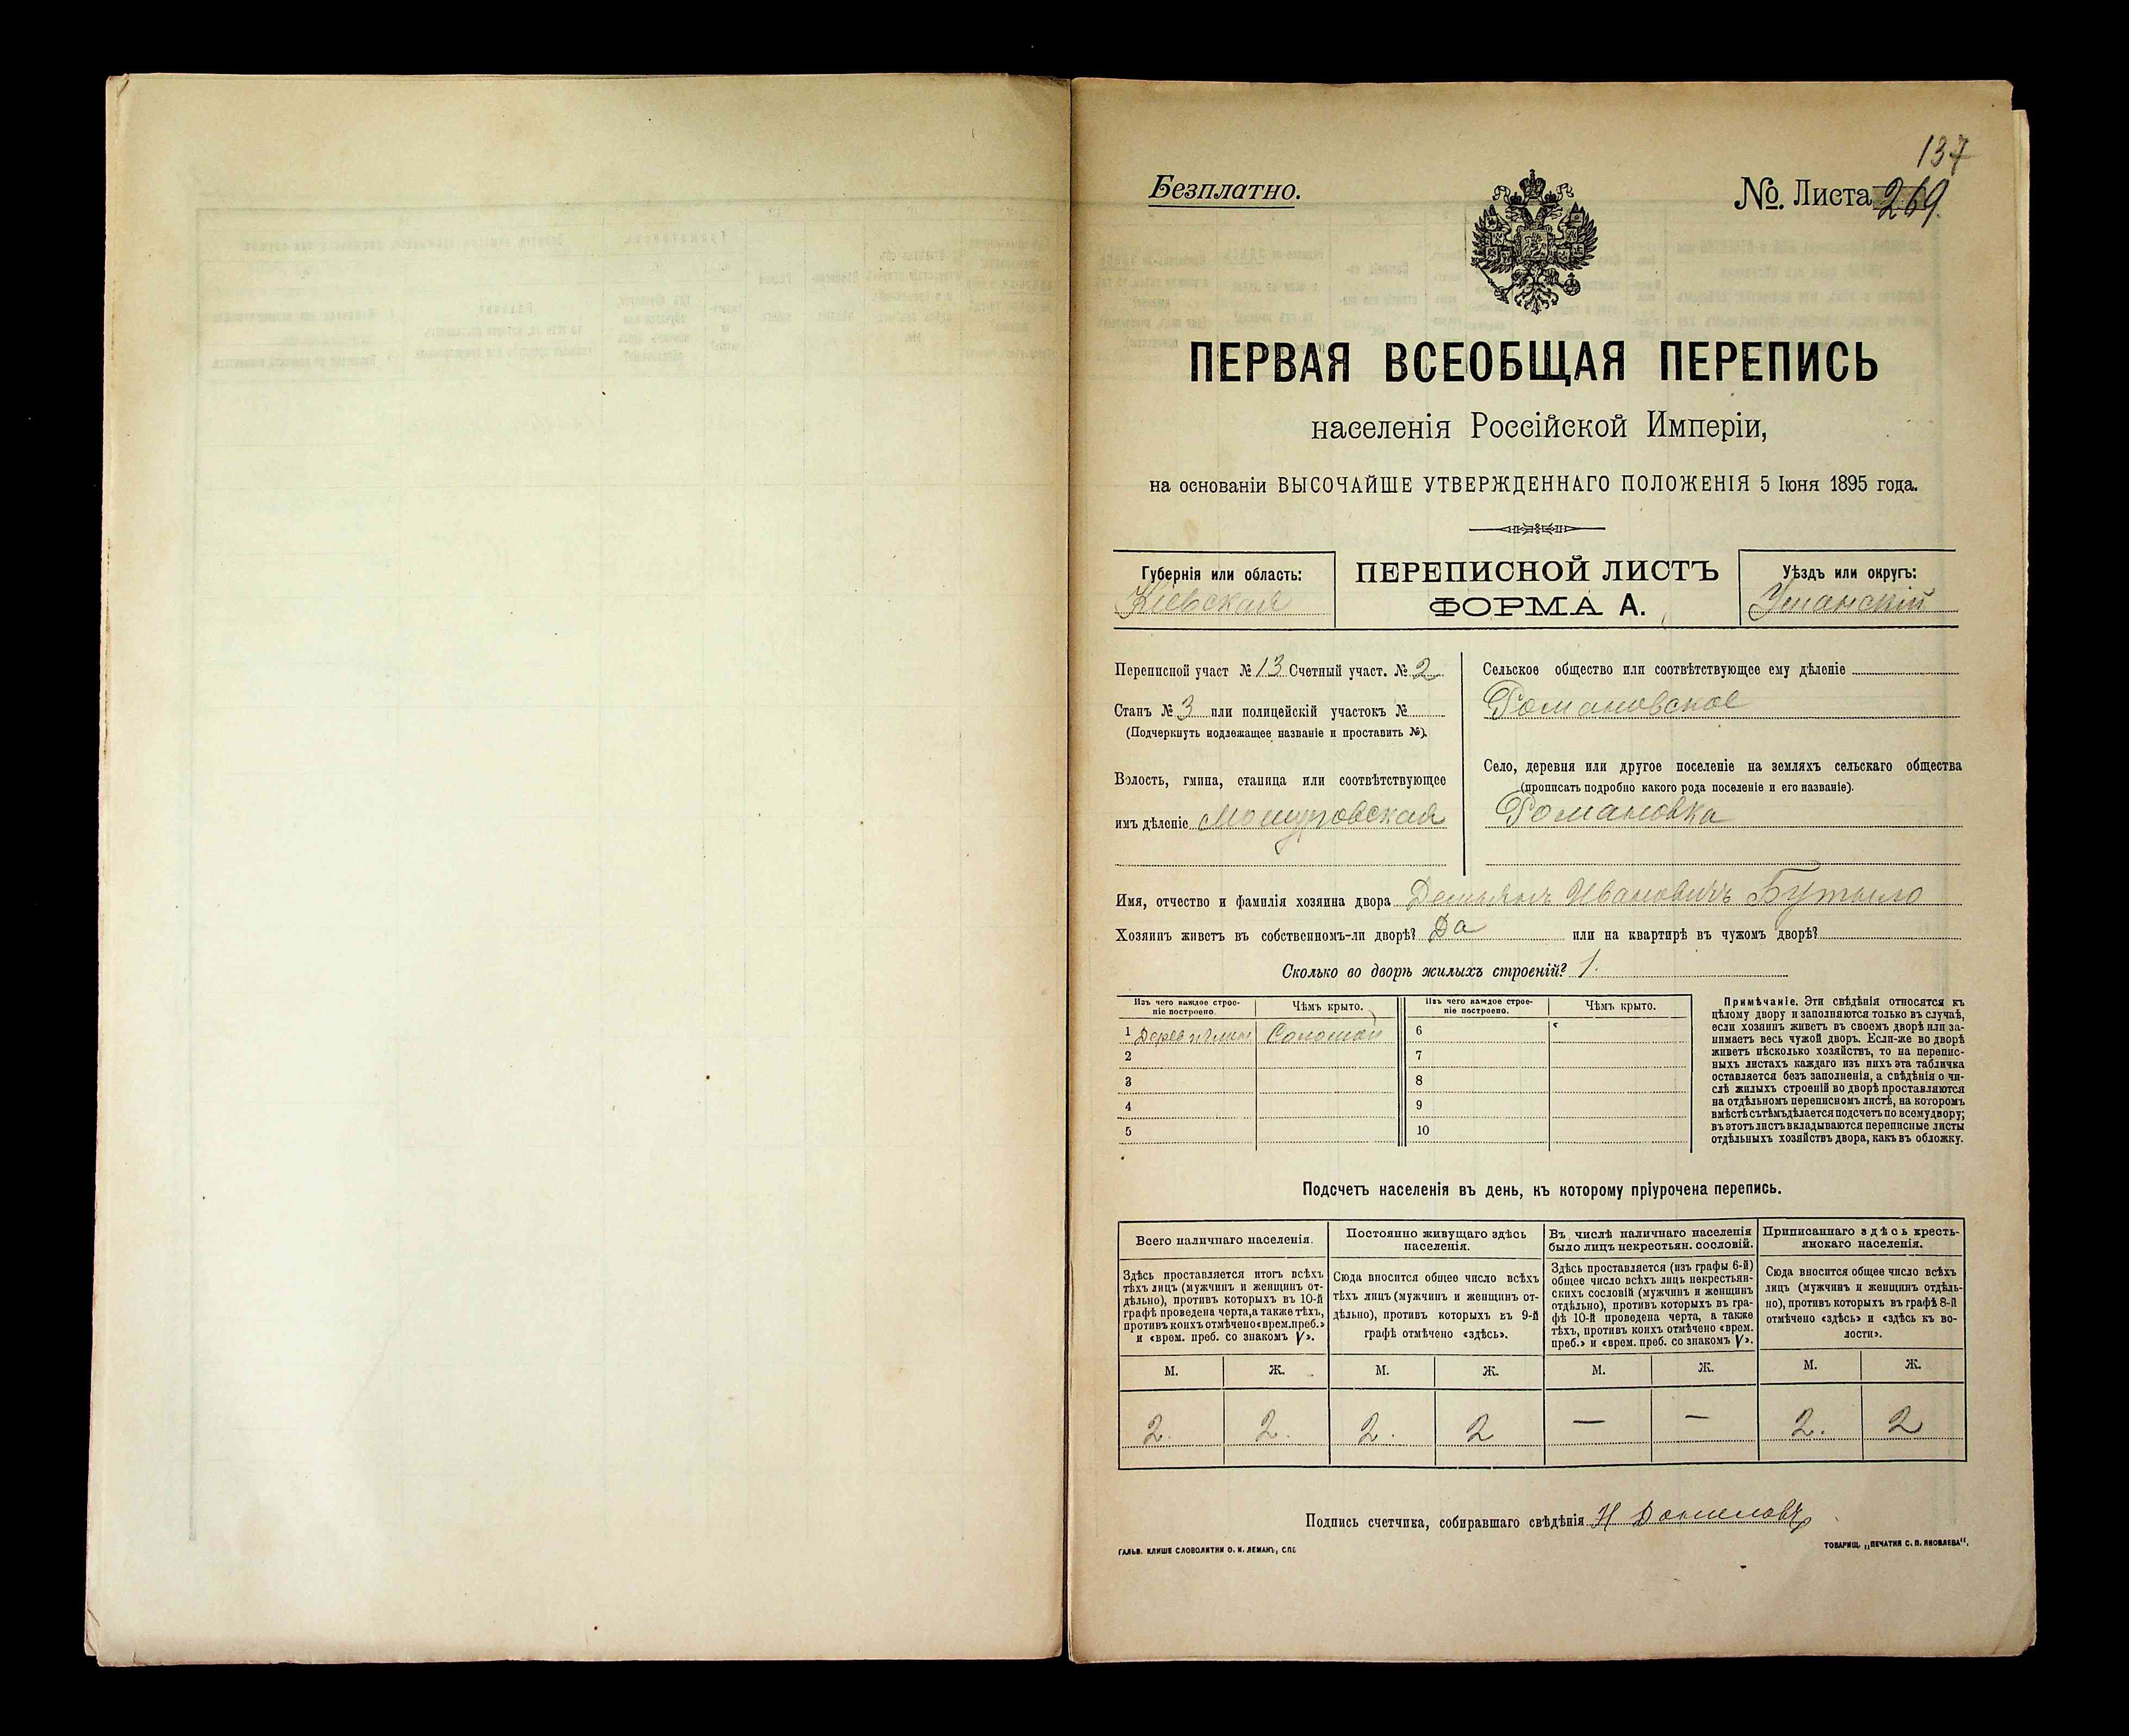 137
Безплатно.
№. Листа 269.
ПЕРВАЯ ВСЕОБЩАЯ ПЕРЕПИСЬ
населенія Россійской Имперіи,
на основаніи ВЫСОЧАЙШЕ УТВЕРЖДЕННАГО ПОЛОЖЕНІЯ 5 Іюня 1895 года.
Губернія или область:
Кіевская
ПЕРЕПИСНОЙ ЛИСТЪ
ФОРМА А.
Уѣздъ или округъ:
Уманскій
Переписной участ № 13 Счетный участ. № 2
Станъ № 3 или полицейскій участокъ №
(Подчеркнуть подлежащее названіе и проставить №).
Волость, гмина, станица или соотвѣтствующее
имъ дѣленіе Мошуровская
Сельское общество или соотвѣтствующее ему дѣленіе
Романовское
Село, деревня или другое поселеніе на земляхъ сельскаго общества
(прописать подробно какого рода поселеніе и его названіе).
Романовка
Имя, отчество и фамилія хозяина двора Демьянъ Ивановичъ Бутыло
Хозяинъ живетъ въ собственномъ-ли дворѣ? Да или на квартирѣ въ чужомъ дворѣ?
Сколько во дворѣ жилыхъ строеній? 1.
Изъ чего каждое строе-
ніе построено.
Чѣмъ крыто.
1 Соломой
2
3
4
5
Изъ чего каждое строе-
ніе построено.
Чѣмъ крыто.
6
7
8
9
10
Примѣчаніе. Эти свѣдѣнія относятся къ
цѣлому двору и заполняются только въ случаѣ,
если хозяинъ живетъ въ своемъ дворѣ или за-
нимаетъ весь чужой дворъ. Если-же во дворѣ
живетъ нѣсколько хозяйствъ, то на перепис-
ныхъ листахъ каждаго изъ нихъ эта табличка
оставляется безъ заполненія, а свѣдѣнія о чи-
слѣ жилыхъ строеній во дворѣ проставляются
на отдѣльномъ переписномъ листѣ, на которомъ
вмѣстѣ съ тѣмъ дѣлается подсчетъ по всему двору;
въ этотъ листъ вкладываются переписные листы
отдѣльныхъ хозяйствъ двора, какъ въ обложку.
Подсчетъ населенія въ день, къ которому пріурочена перепись.
Всего наличнаго населенія.
Здѣсь проставляется итогъ всѣхъ
тѣхъ лицъ (мужчинъ и женщинъ от-
дѣльно), противъ которыхъ въ 10-й
графѣ проведена черта, а также тѣхъ,
противъ коихъ отмѣчено «врем. преб.»
и «врем. преб. со знакомъ V».
М. Ж.
2. 2.
Постоянно живущаго здѣсь
населенія.
Сюда вносится общее число всѣхъ
тѣхъ лицъ (мужчинъ и женщинъ от-
дѣльно), противъ которыхъ въ 9-й
графѣ отмѣчено «здѣсь».
М. Ж.
2. 2
Въ числѣ наличнаго населенія
было лицъ некрестьян. сословій.
Здѣсь проставляется (изъ графы 6-й)
общее число всѣхъ лицъ некрестьян-
скихъ сословій (мужчинъ и женщинъ
отдѣльно), противъ которыхъ въ гра-
фѣ 10-й проведена черта, а также
тѣхъ, противъ коихъ отмѣчено «врем.
преб.» и «врем. преб. со знакомъ V».
М. Ж.
— —
Приписаннаго здѣсь кресть-
янскаго населенія.
Сюда вносится общее число всѣхъ
лицъ (мужчинъ и женщинъ отдѣль-
но), противъ которыхъ въ графѣ 8-й
отмѣчено «здѣсь» и «здѣсь въ во-
лости».
М. Ж.
2. 2
Подпись счетчика, собиравшаго свѣдѣнія Н Даниловъ
ГАЛЬВ. КЛИШЕ СЛОВОЛИТНИ О. И. ЛЕМАНЪ, СПБ.
ТОВАРИЩ. „ПЕЧАТНЯ С. П. ЯКОВЛЕВА“.